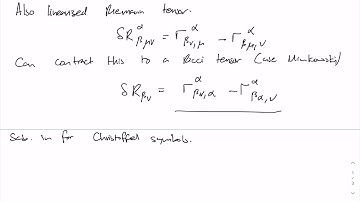 Also linearised Riemann tensor.
δR^α_{βμν} = Γ^α_{βν,μ} - Γ^α_{βμ,ν}
Can contract this to a Ricci tensor (use Minkowski)
δR_{βν} = Γ^α_{βν,α} - Γ^α_{βα,ν}
Sub. in for Christoffel symbols.